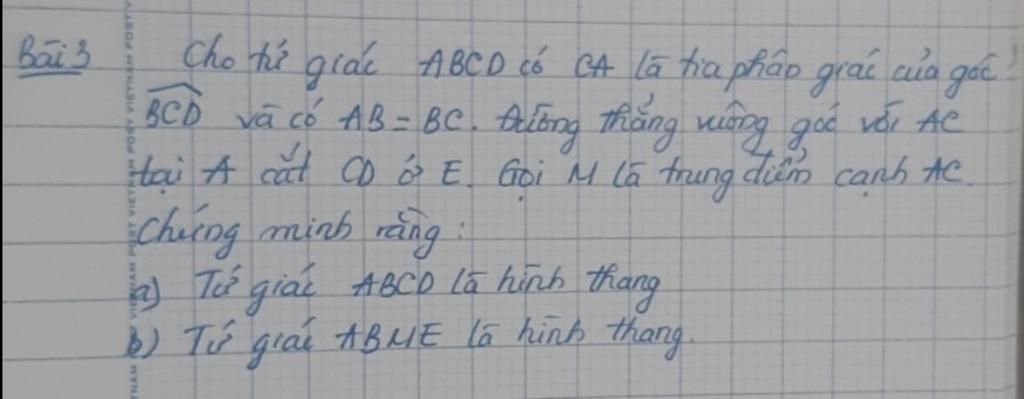 Bài 3 Cho tứ giác ABCD có CA là tia phân giác của góc
BCD và có AB = BC. Đường thẳng vuông góc với AC
tại A cắt CD ở E. Gọi M là trung điểm cạnh AC.
Chứng minh rằng:
a) Tứ giác ABCD là hình thang
b) Tứ giác ABME là hình thang.